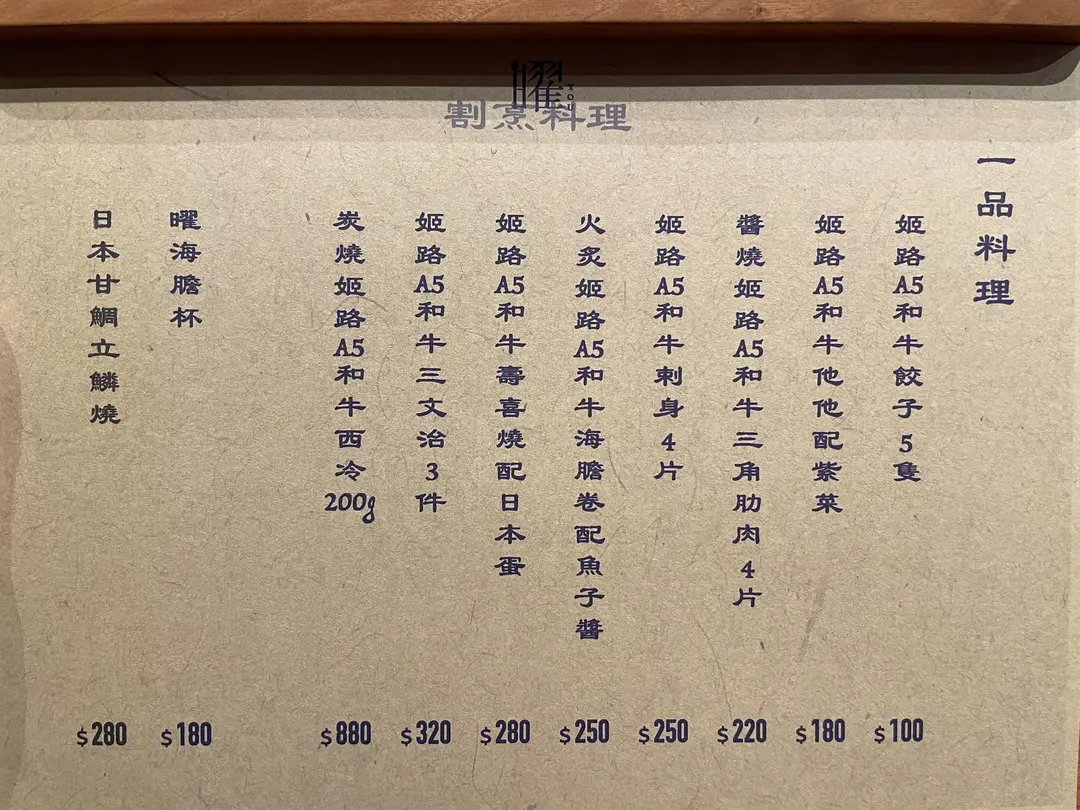 曜 YOU
割烹料理
一品料理
姬路A5和牛餃子5隻
$100
姬路A5和牛他他配紫菜
$180
醬燒姬路A5和牛三角肋肉4片
$220
姬路A5和牛刺身4片
$250
火炙姬路A5和牛海膽卷配魚子醬
$250
姬路A5和牛壽喜燒配日本蛋
$280
姬路A5和牛三文治3件
$320
炭燒姬路A5和牛西冷200g
$880
曜海膽杯
$180
日本甘鯛立鱗燒
$280